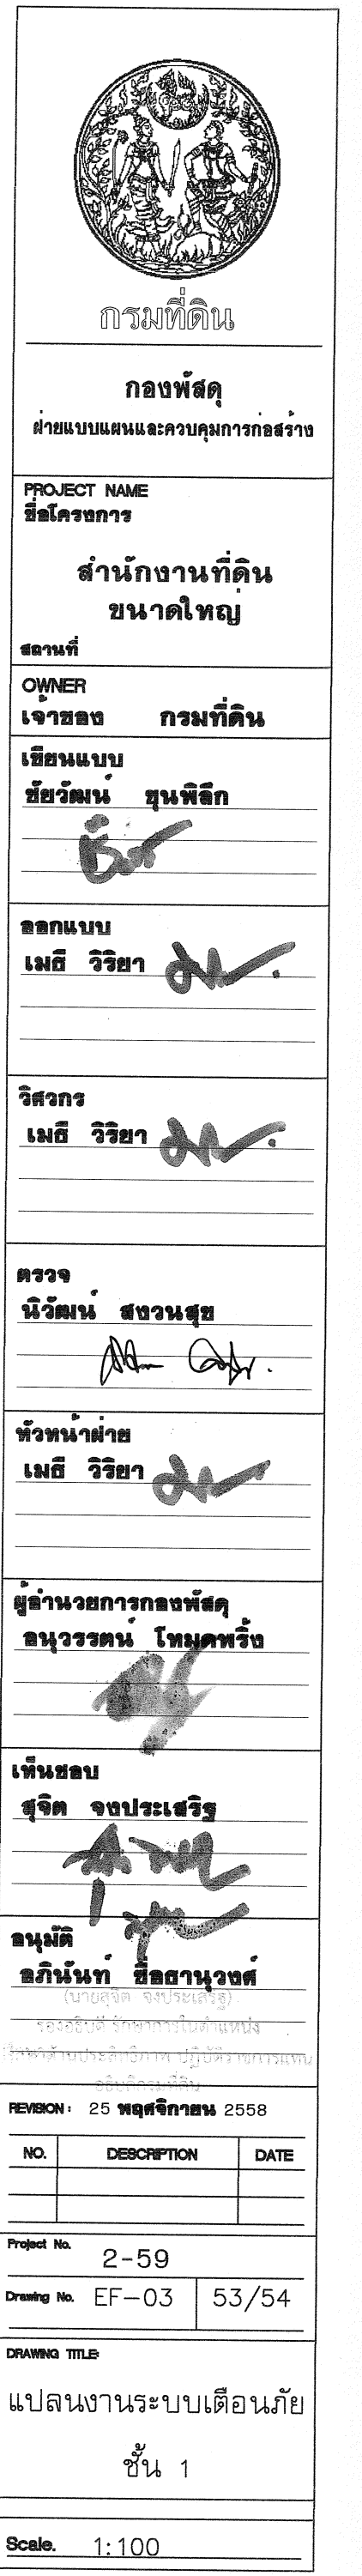 กรมที่ดิน
กองพัสดุ
ฝ่ายแบบแผนและควบคุมการก่อสร้าง
PROJECT NAME
ชื่อโครงการ
สำนักงานที่ดิน
ขนาดใหญ่
สถานที่
OWNER
เจ้าของ กรมที่ดิน
เขียนแบบ
ชัยวัฒน์ ขุนพิลึก
ออกแบบ
เมธี วิริยา
วิศวกร
เมธี วิริยา
ตรวจ
นิวัฒน์ สงวนสุข
หัวหน้าฝ่าย
เมธี วิริยา
ผู้อำนวยการกองพัสดุ
อนุวรรตน์ โหมดพริ้ง
เห็นชอบ
สุจิต จงประเสริฐ
อนุมัติ
อภินันท์ ซื่อธานุวงศ์
(นายสุจิต จงประเสริฐ)
รองอธิบดี รักษาการในตำแหน่ง
ปฏิบัติราชการแทน
อธิบดีกรมที่ดิน
REVISION : 25 พฤศจิกายน 2558
NO. DESCRIPTION DATE
Project No.
2-59
Drawing No. EF-03 53/54
DRAWING TITLE:
แปลนงานระบบเตือนภัย
ชั้น 1
Scale. 1:100